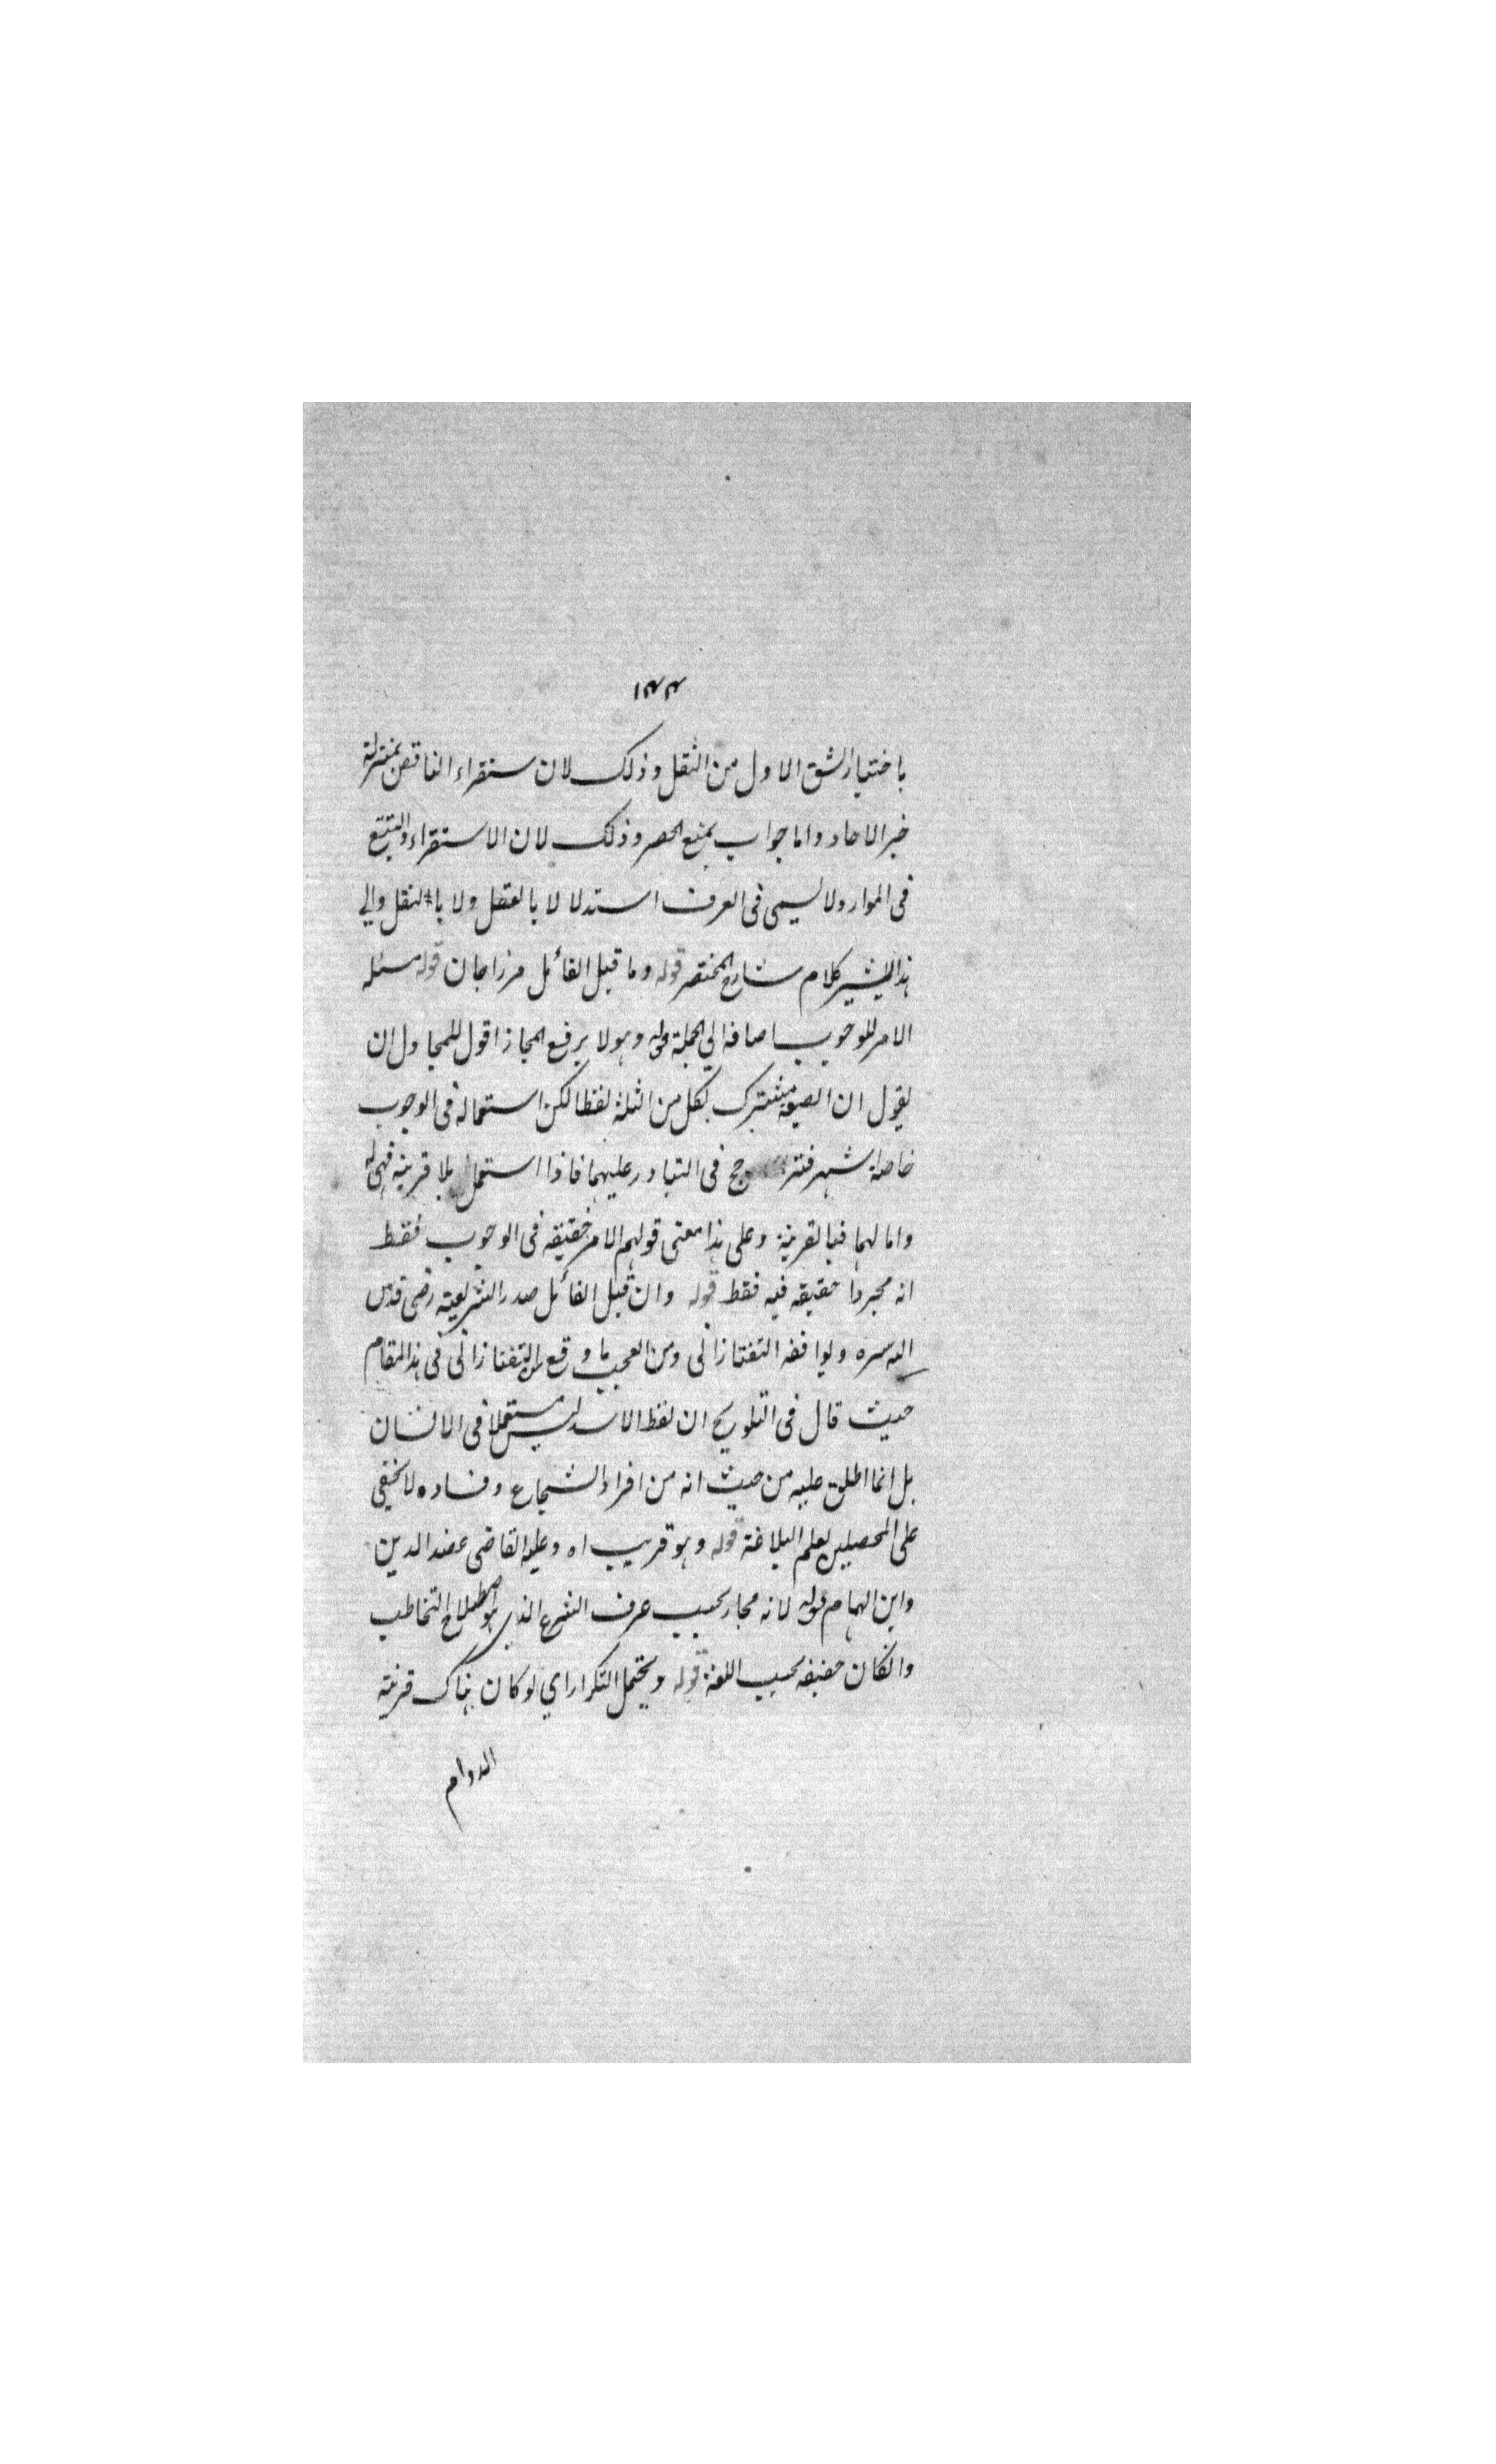 ١٤٤
باختيار الشق الاول من النقل وذلك لان ستقراء الناقص بمنزلة
خبر الاحاد واما جواب بمنع الحصر وذلك لان الاستقراء والتتبع
فى الموارد لا يسمى فى العرف استدلالا لا بالعقل ولا بالنقل والى
هذا يشير كلام شارح المختصر قوله وما قيل القائل مرزاجان قوله مسئلة
الامر للوجوب اضافة الى الجملة قوله وهو لا يرفع المجاز اقول للمجاول ان
يقول ان الصيغة مشترك لكل من الثلثة لفظا لكن استعماله فى الوجوب
خاصة اشهر فترجح فى التبادر عليهما فاذا استعمل بلا قرينة فهى له
واما لهما فبالقرينة وعلى هذا معنى قولهم الامر حقيقة فى الوجوب فقط
انه مجردا حقيقة فيه فقط قوله وان قيل القائل صدر الشريعة رضى قدس
الله سره ويوافقه التفتازانى ومن العجب ما وقع من التفتازانى فى هذا المقام
حيث قال فى التلويح ان لفظ الاسد ليس مستعملا فى الانسان
بل انما اطلق عليه من حيث انه من افراد الشجاع وفساده لا يخفى
على المحصلين لعلم البلاغة قوله وهو قريب اه وعليه القاضى عضد الدين
وابن الهمام قوله لانه مجاز بحسب عرف الشرع الذى هو اصطلاح التخاطب
وانكان حقيقة بحسب اللغة قوله ويحتمل التكرار اي لو كان هناك قرينة
الدوام